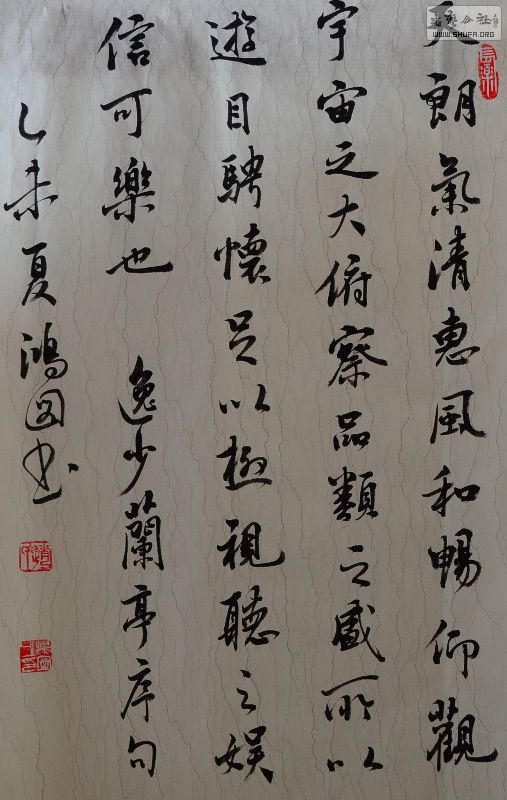 天朗氣清惠風和暢仰觀
宇宙之大俯察品類之盛所以
遊目騁懷足以極視聽之娱
信可樂也 逸少蘭亭序句
乙未夏鴻图书
长樂
WWW.SHUFA.ORG